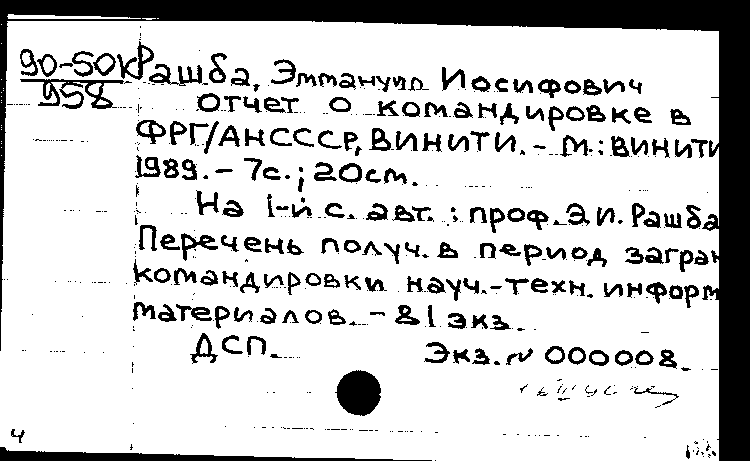 90-50К Рашба, Эммануил Иосифович
958 отчет о командировке в
ФРГ/АНСССР, ВИНИТИ. - М.: ВИНИТИ
1989. - 7с.; 20см.
На 1-й с. авт.: проф. Э И. Рашба
Перечень получ. в период загран
командировки науч.-техн. информ
материалов. - 81 экз.
ДСП. Экз. N 000008.
4